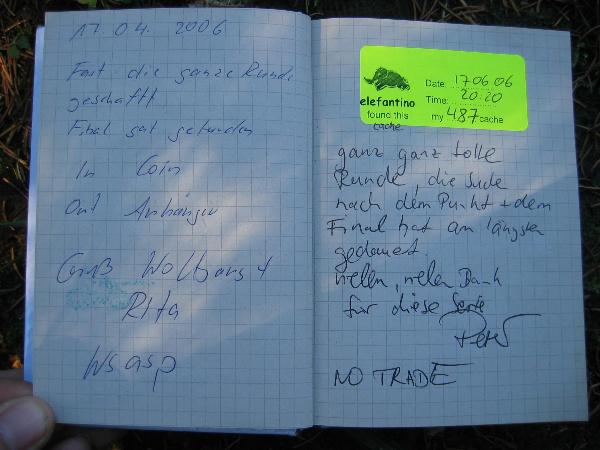 17.04.2006
Fast die ganze Runde
geschafft
Final gut gefunden
In Coin
Out Anhänger
Gruß Wolfgang +
Rita
Wsasp
elefantino
found this
cache
Date: 17 06 06
Time: 20:20
my 487 cache
ganz ganz tolle
Runde, die Suche
nach dem Punkt + dem
Final hat am längsten
gedauert.
vielen, vielen Dank
für diese Serie
Peter
NO TRADE